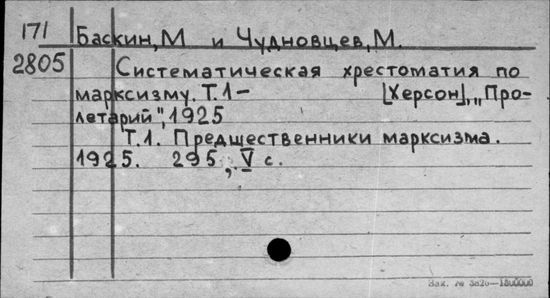 171 Баскин, М и Чудновцев, М.
2805 Систематическая хрестоматия по
марксизму. Т.1- [Херсон], „Про-
летарий", 1925
Т.1. Предшественники марксизма.
1925. 295, V с.
Зак. № 3826—1800000